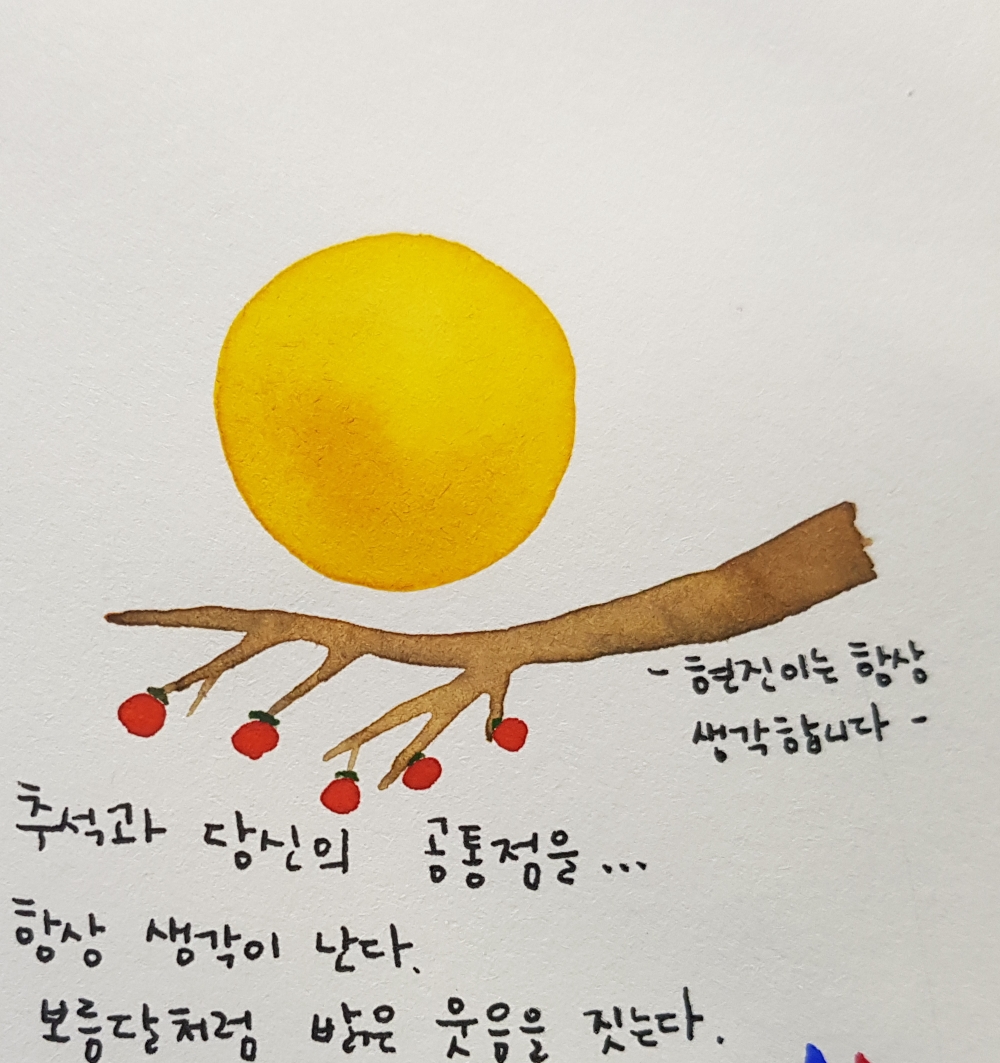 - 현진이는 항상
생각합니다 -
추석과 당신의 공통점을...
항상 생각이 난다.
보름달처럼 밝은 웃음을 짓는다.